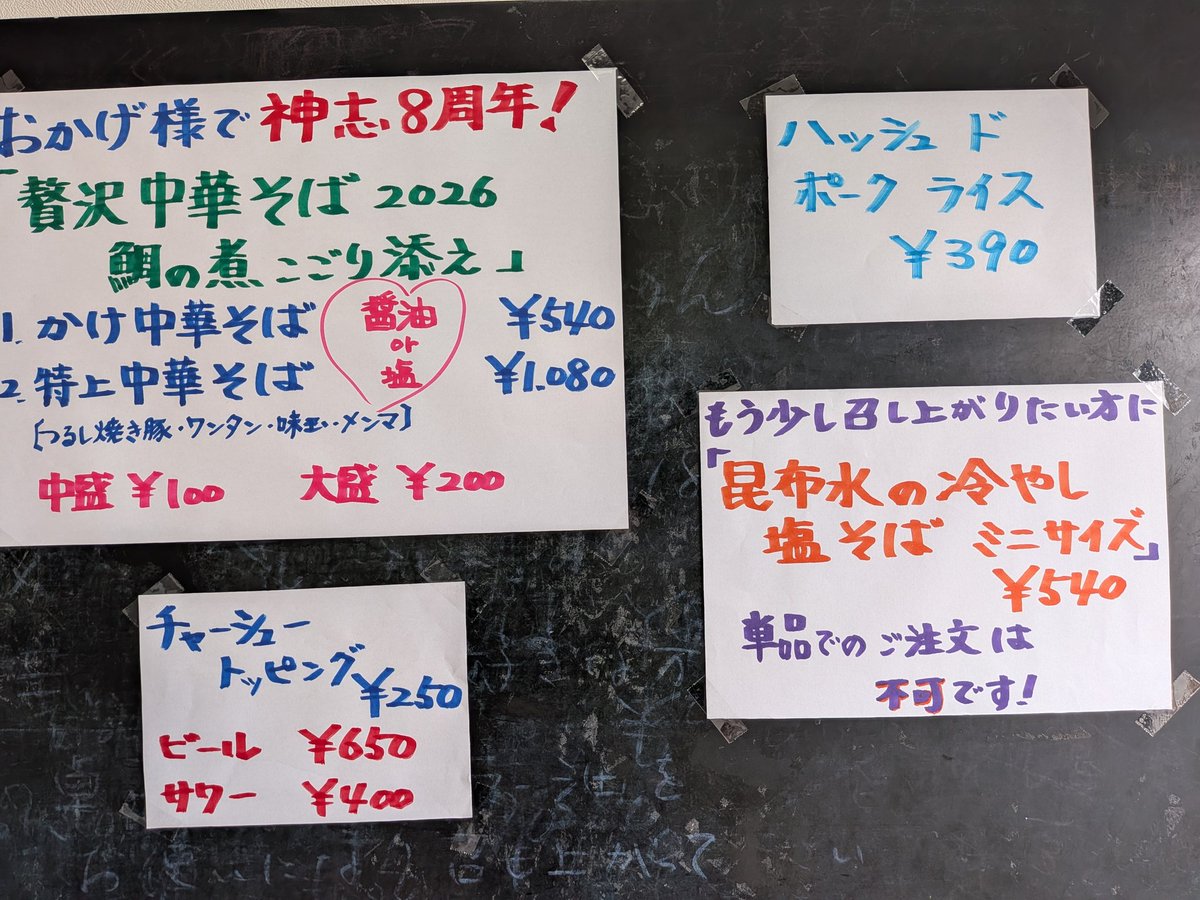 おかげ様で 神志8周年!
「贅沢中華そば2026
鯛の煮こごり添え」
1. かけ中華そば ¥540
2. 特上中華そば ¥1.080
醤油
or
塩
[つるし焼き豚・ワンタン・味玉・メンマ]
中盛 ¥100 大盛 ¥200
ハッシュド
ポーク ライス
¥390
もう少し召し上がりたい方に
「昆布水の冷やし
塩そば ミニサイズ」
¥540
単品でのご注文は
不可です!
チャーシュー
トッピング ¥250
ビール ¥650
サワー ¥400